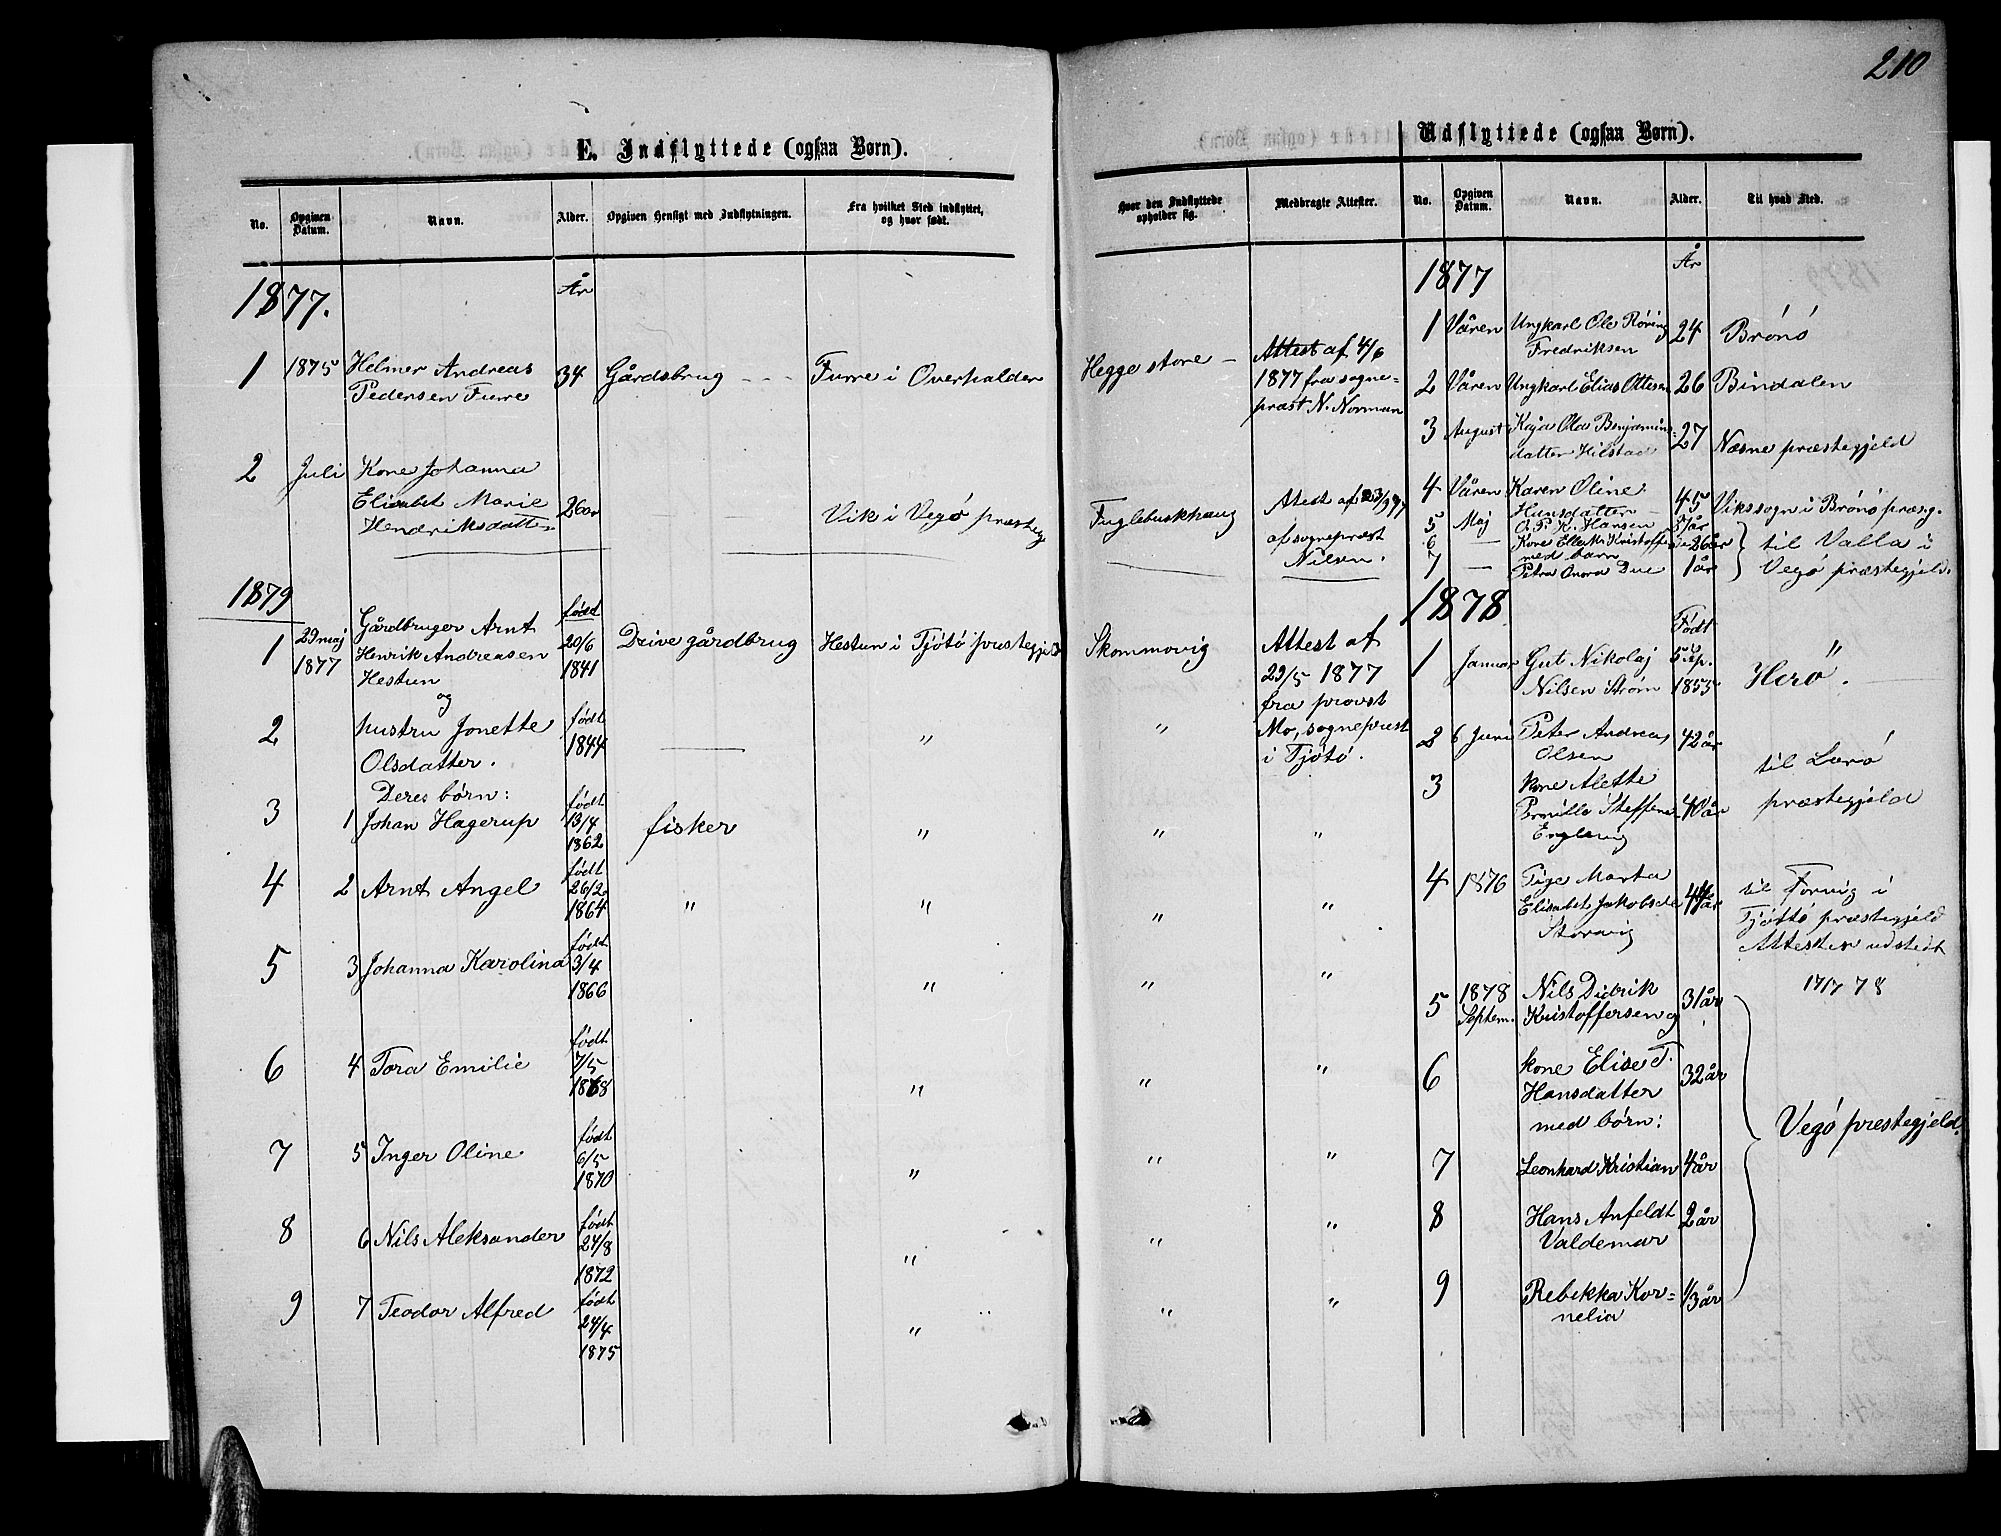 210
E. Indflyttede (ogsaa Børn).
No.
Opgiven Datum.
Navn.
Alder.
Opgiven Hensigt med Indflytningen.
Fra hvilket Sted indflyttet, og hvor født.
Hvor den Indflyttede opholder sig.
Medbragte Attester.
1877.
År
1 1875 Helmer Andreas 34 Gårdsbrug - - - Furre i Overhalden Hegge store - Attest af 4/6
Pedersen Furre 1877 fra sogne=
præst N. Norman
2 Juli Kone Johanna
Elisabet Marie 26 år Vik i Vegø præsteg Fuglebuskhaug Attest af
Hendriksdatter af sognepræst
Nilsen.
1879
født
1 29 maj 1877 Gårdbruger Arnt 20/6 1841 Drive gårdbrug Hestun i Tjøtø præstegjeld Skommovig Attest af
Henrik Andreasen 29/5 1877
Hestun fra provst
og
2 hustru Jonette født 1844 " " Mo, sognepræst
Olsdatter. i Tjøtø.
Deres børn:
3 1 Johan Hagerup født 13/4 1862 fisker " " "
4 2 Arnt Angel født 26/2 1864 " " " "
5 3 Johanna Karolina født 3/4 1866 " " "
6 4 Tora Emilie født 7/5 1868 " " "
7 5 Inger Oline født 6/5 1870 " " "
8 6 Nils Aleksander født 24/8 1872 " " "
9 7 Teodor Alfred født 24/4 1875 " " "
Udflyttede (ogsaa Børn).
No.
Opgiven Datum.
Navn.
Alder.
Til hvad Sted.
1877
År
1 Våren Ungkarl Ole Røring 24 Brønø
Fredriksen
2 Våren Ungkarl Elias Ottesen 26 Bindalen
3 August Kaja Ola Benjamins= 27 Næsne præstegjeld
datter Hilstad
4 Våren Karen Oline 45 Vikssogn i Brønø præsg.
Hansdatter -
5 Maj O. P. K. Hansen
6 — Kone Kristoffe 26 år til Valla i
med barn
7 — Petra Onora Due 1 år Vegø præstegjeld.
1878
Født
1 Januar Gut Nikolaj 5 Sep. Herø.
Nilsen Strøm 1855
2 6 Juni Peter Andreas 42 år
Olsen til Lurø
3 kone Alette præstegjeld
Pernille Steffens 40 år
Englevig
4 1876 Pige Marta 44 år til Forvig i
Elisabet Jakobsd Tjøttø præstegjeld
Storvig Attesten udstedt
17/7 78
5 1878 Septem. Nils Didrik 31 år
Kristoffersen og
6 kone Elise T. 32 år
Hansdatter
med børn: Vegø præstegjeld.
7 Leonhard Kristian 4 år
8 Hans Anfeldt 2 år
Valdemar
9 Rebekka Kor= 1/3 år
nelia